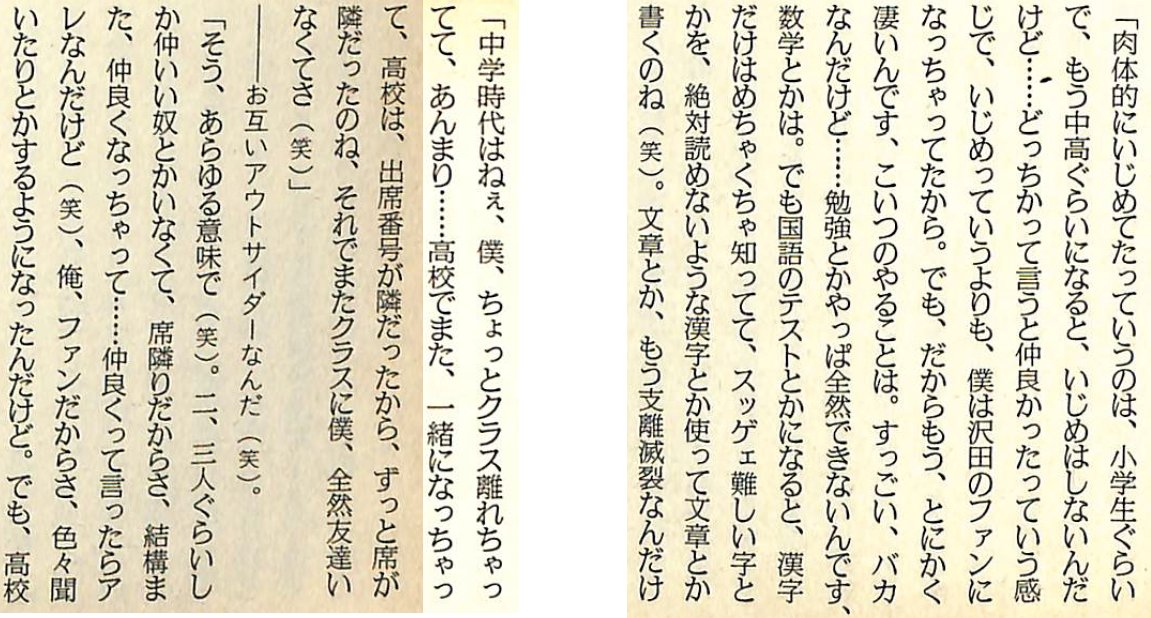 「肉体的にいじめてたっていうのは、小学生ぐらい
で、もう中高ぐらいになると、いじめはしないんだ
けど……どっちかって言うと仲良かったっていう感
じで、いじめっていうよりも、僕は沢田のファンに
なっちゃってたから。でも、だからもう、とにかく
凄いんです、こいつのやることは。すっごい、バカ
なんだけど……勉強とかやっぱ全然できないんです、
数学とかは。でも国語のテストとかになると、漢字
だけはめちゃくちゃ知ってて、スッゲェ難しい字と
かを、絶対読めないような漢字とか使って文章とか
書くのね（笑）。文章とか、もう支離滅裂なんだけ
「中学時代はねぇ、僕、ちょっとクラス離れちゃっ
てて、あんまり……高校でまた、一緒になっちゃっ
て、高校は、出席番号が隣だったから、ずっと席が
隣だったのね、それでまたクラスに僕、全然友達い
なくてさ（笑）」
――お互いアウトサイダーなんだ（笑）。
「そう、あらゆる意味で（笑）。二、三人ぐらいし
か仲いい奴とかいなくて、席隣りだからさ、結構ま
た、仲良くなっちゃって……仲良くって言ったらア
レなんだけど（笑）、俺、ファンだからさ、色々聞
いたりとかするようになったんだけど。でも、高校